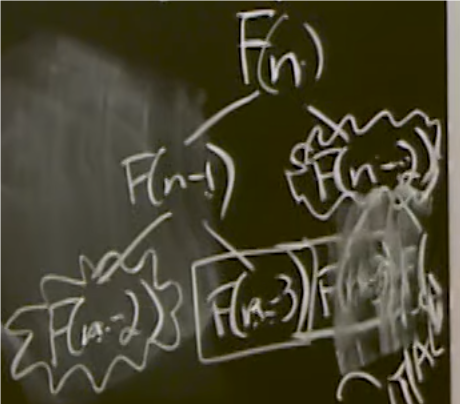 F(n)
F(n-1) F(n-2)
F(n-2) F(n-3)